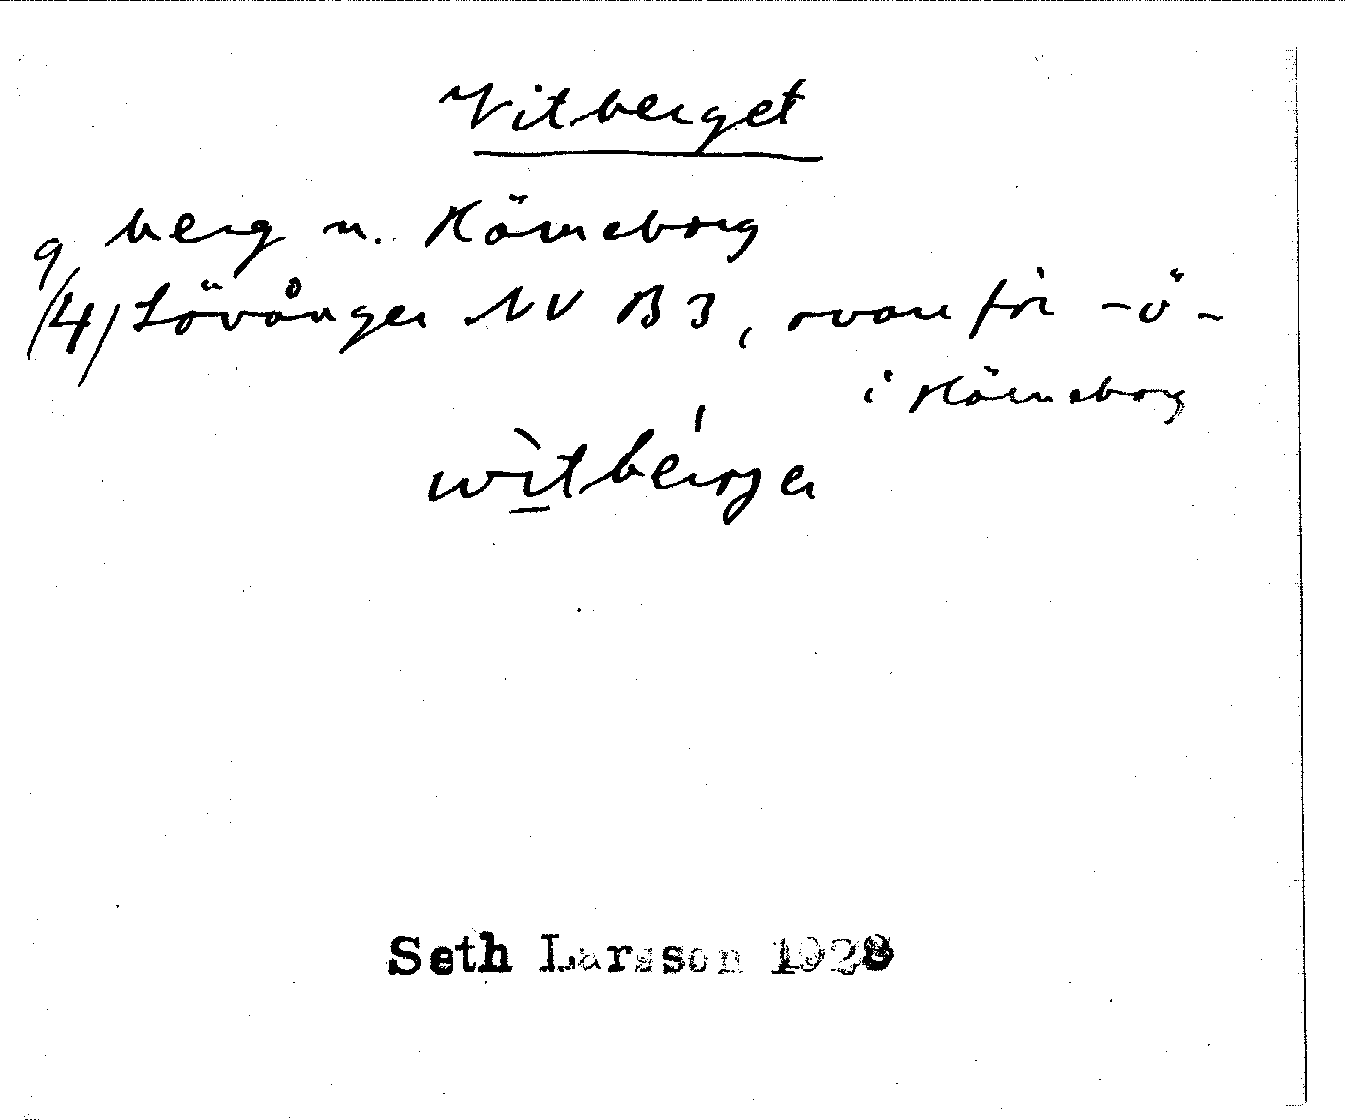 Vitberget
berg n. Kärneborg
9/4/ Lövånger NV B 3, ovanför -ö-
i Kärneborg
witbérger
Seth Larsson 1928